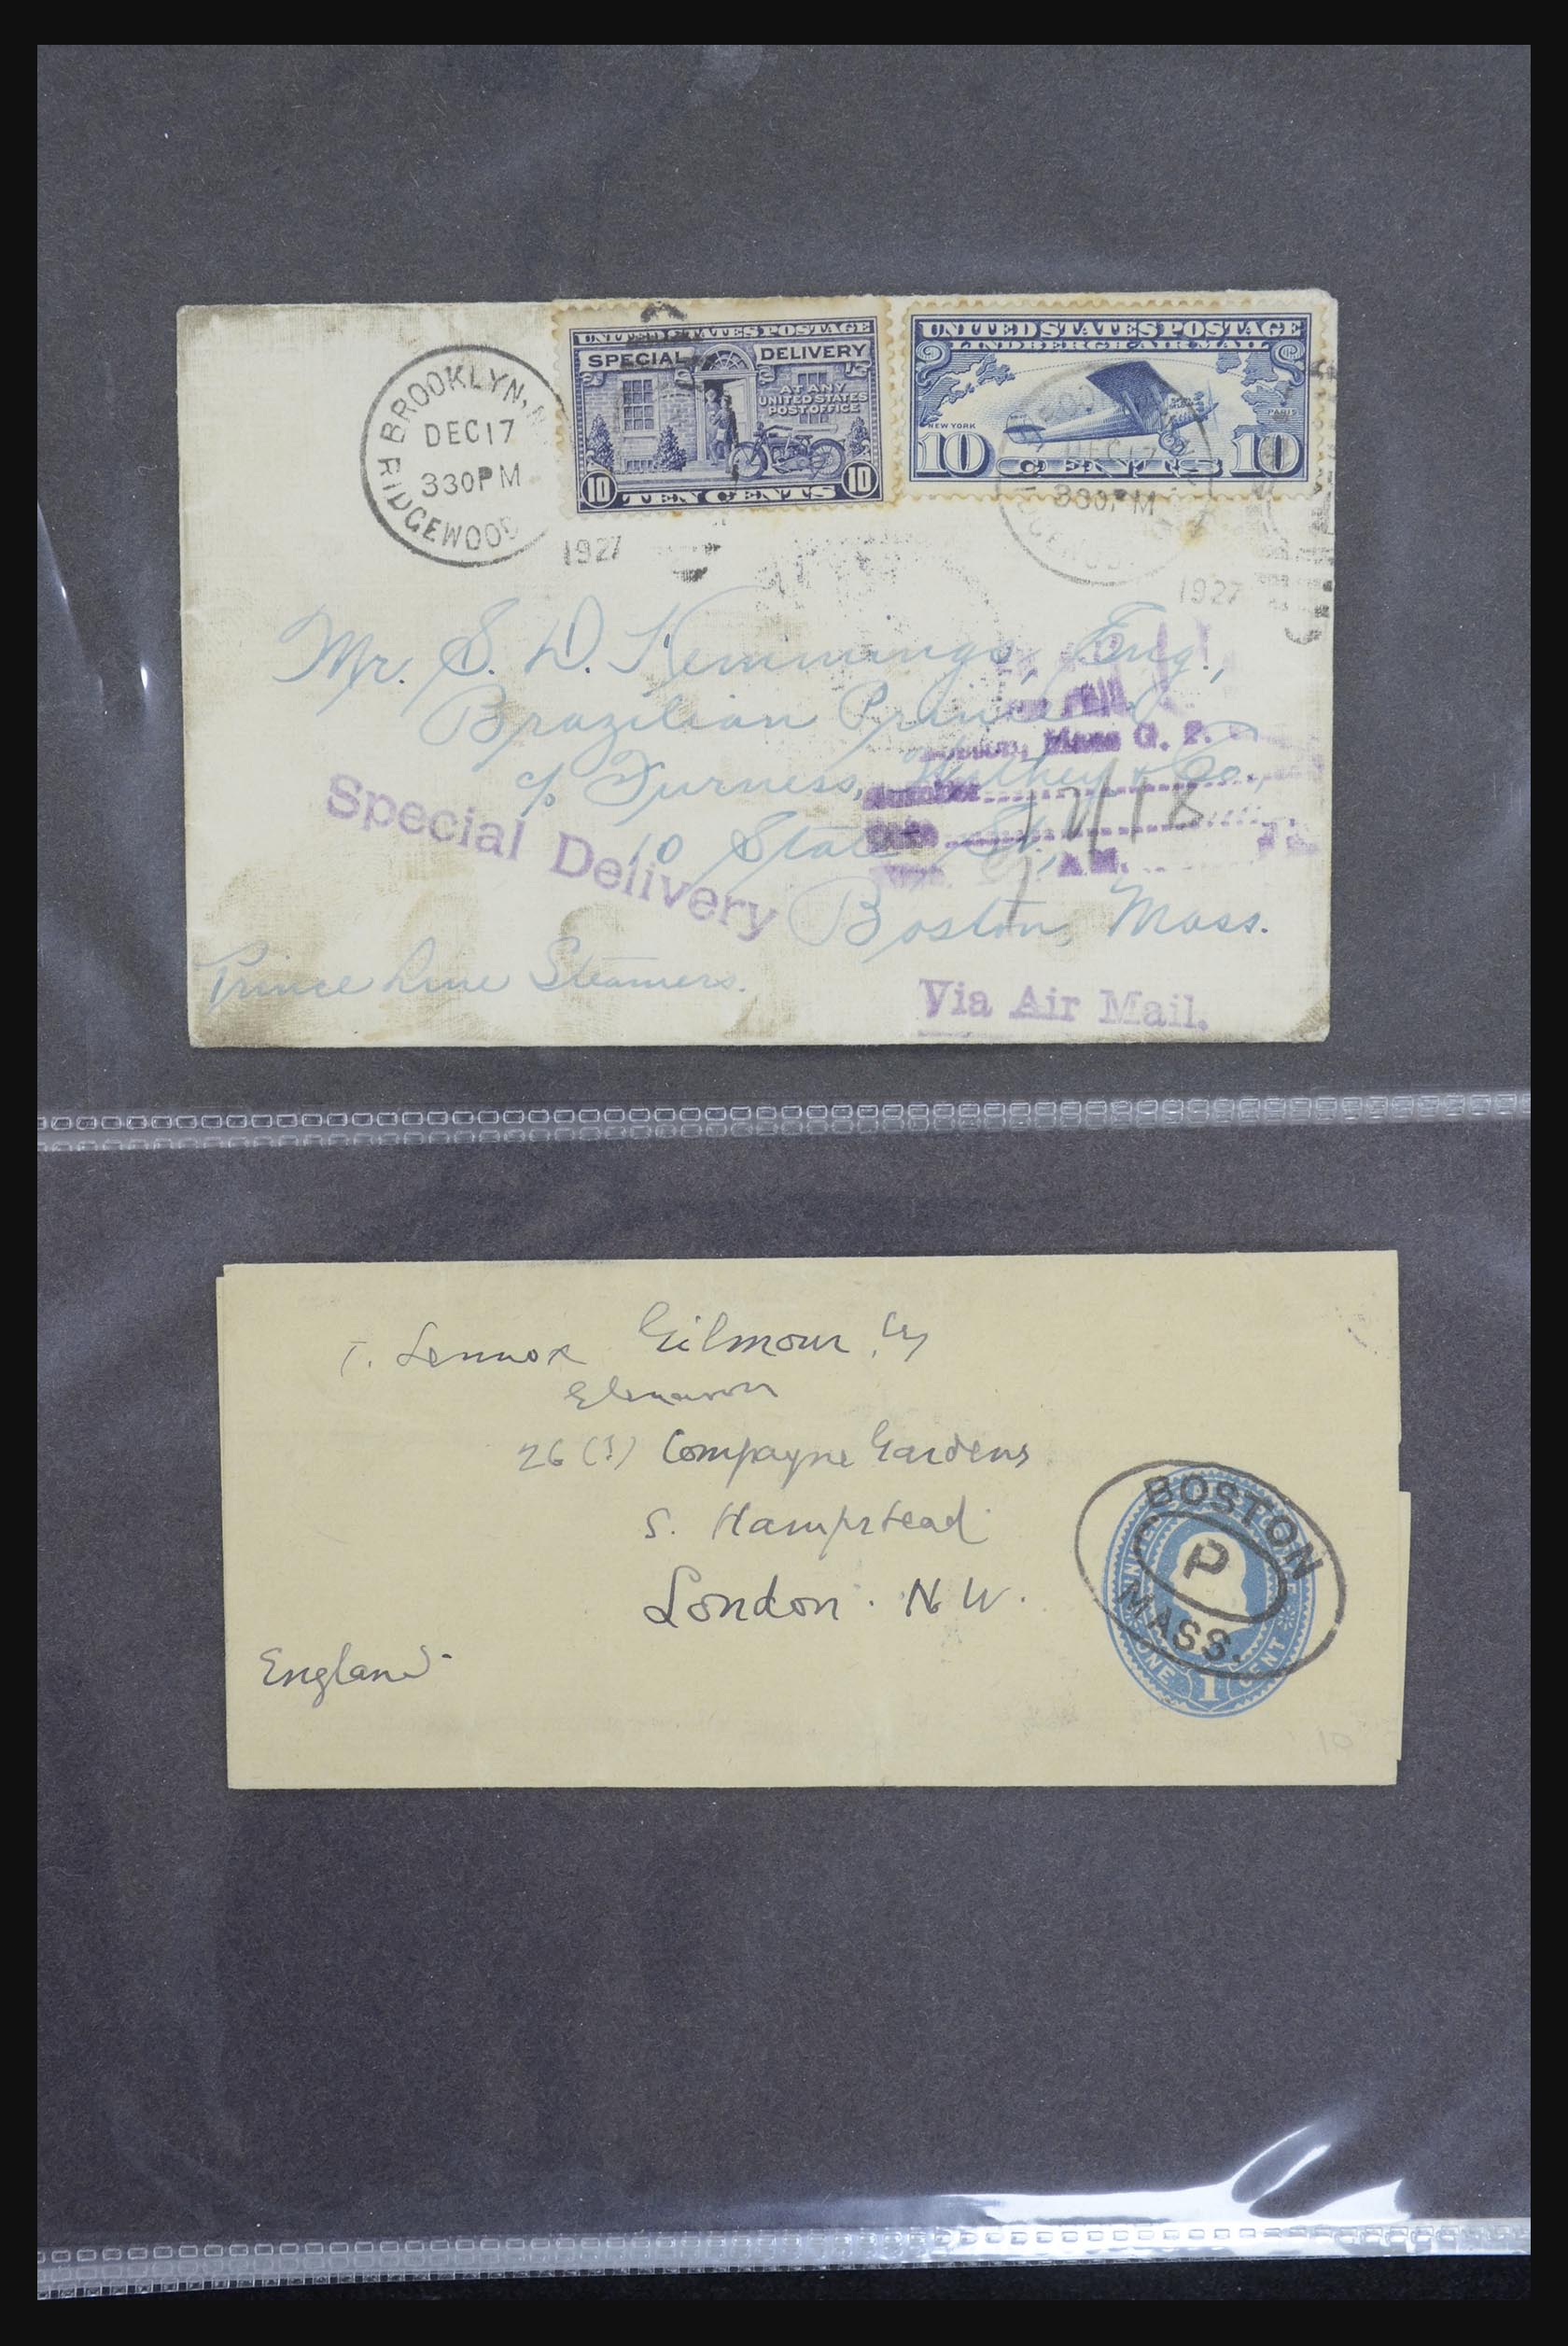 BROOKLYN, N
DEC 17
330PM
RIDGEWOOD
1927
UNITED STATES POSTAGE
SPECIAL DELIVERY
AT ANY
UNITED STATES
POST OFFICE
10 TEN CENTS 10
UNITED STATES POSTAGE
LINDBERGH AIR MAIL
NEW YORK
PARIS
10 CENTS 10
DEC 17
330PM
1927
Mr. S. D. Kemmings, Eng.,
Brazilian Prince
c/o Furness, Withey & Co.,
10 State St.,
Boston, Mass.
Special Delivery
Boston, Mass G. P.
Number
Date 12/18
A.M.
Prince Line Steamers.
Via Air Mail.
T. Lennox Gilmour, Esq
26 (?) Compayne Gardens
S. Hampstead
London. N W.
England.
BOSTON
P
MASS.
UNITED
ONE 1 CENT
10